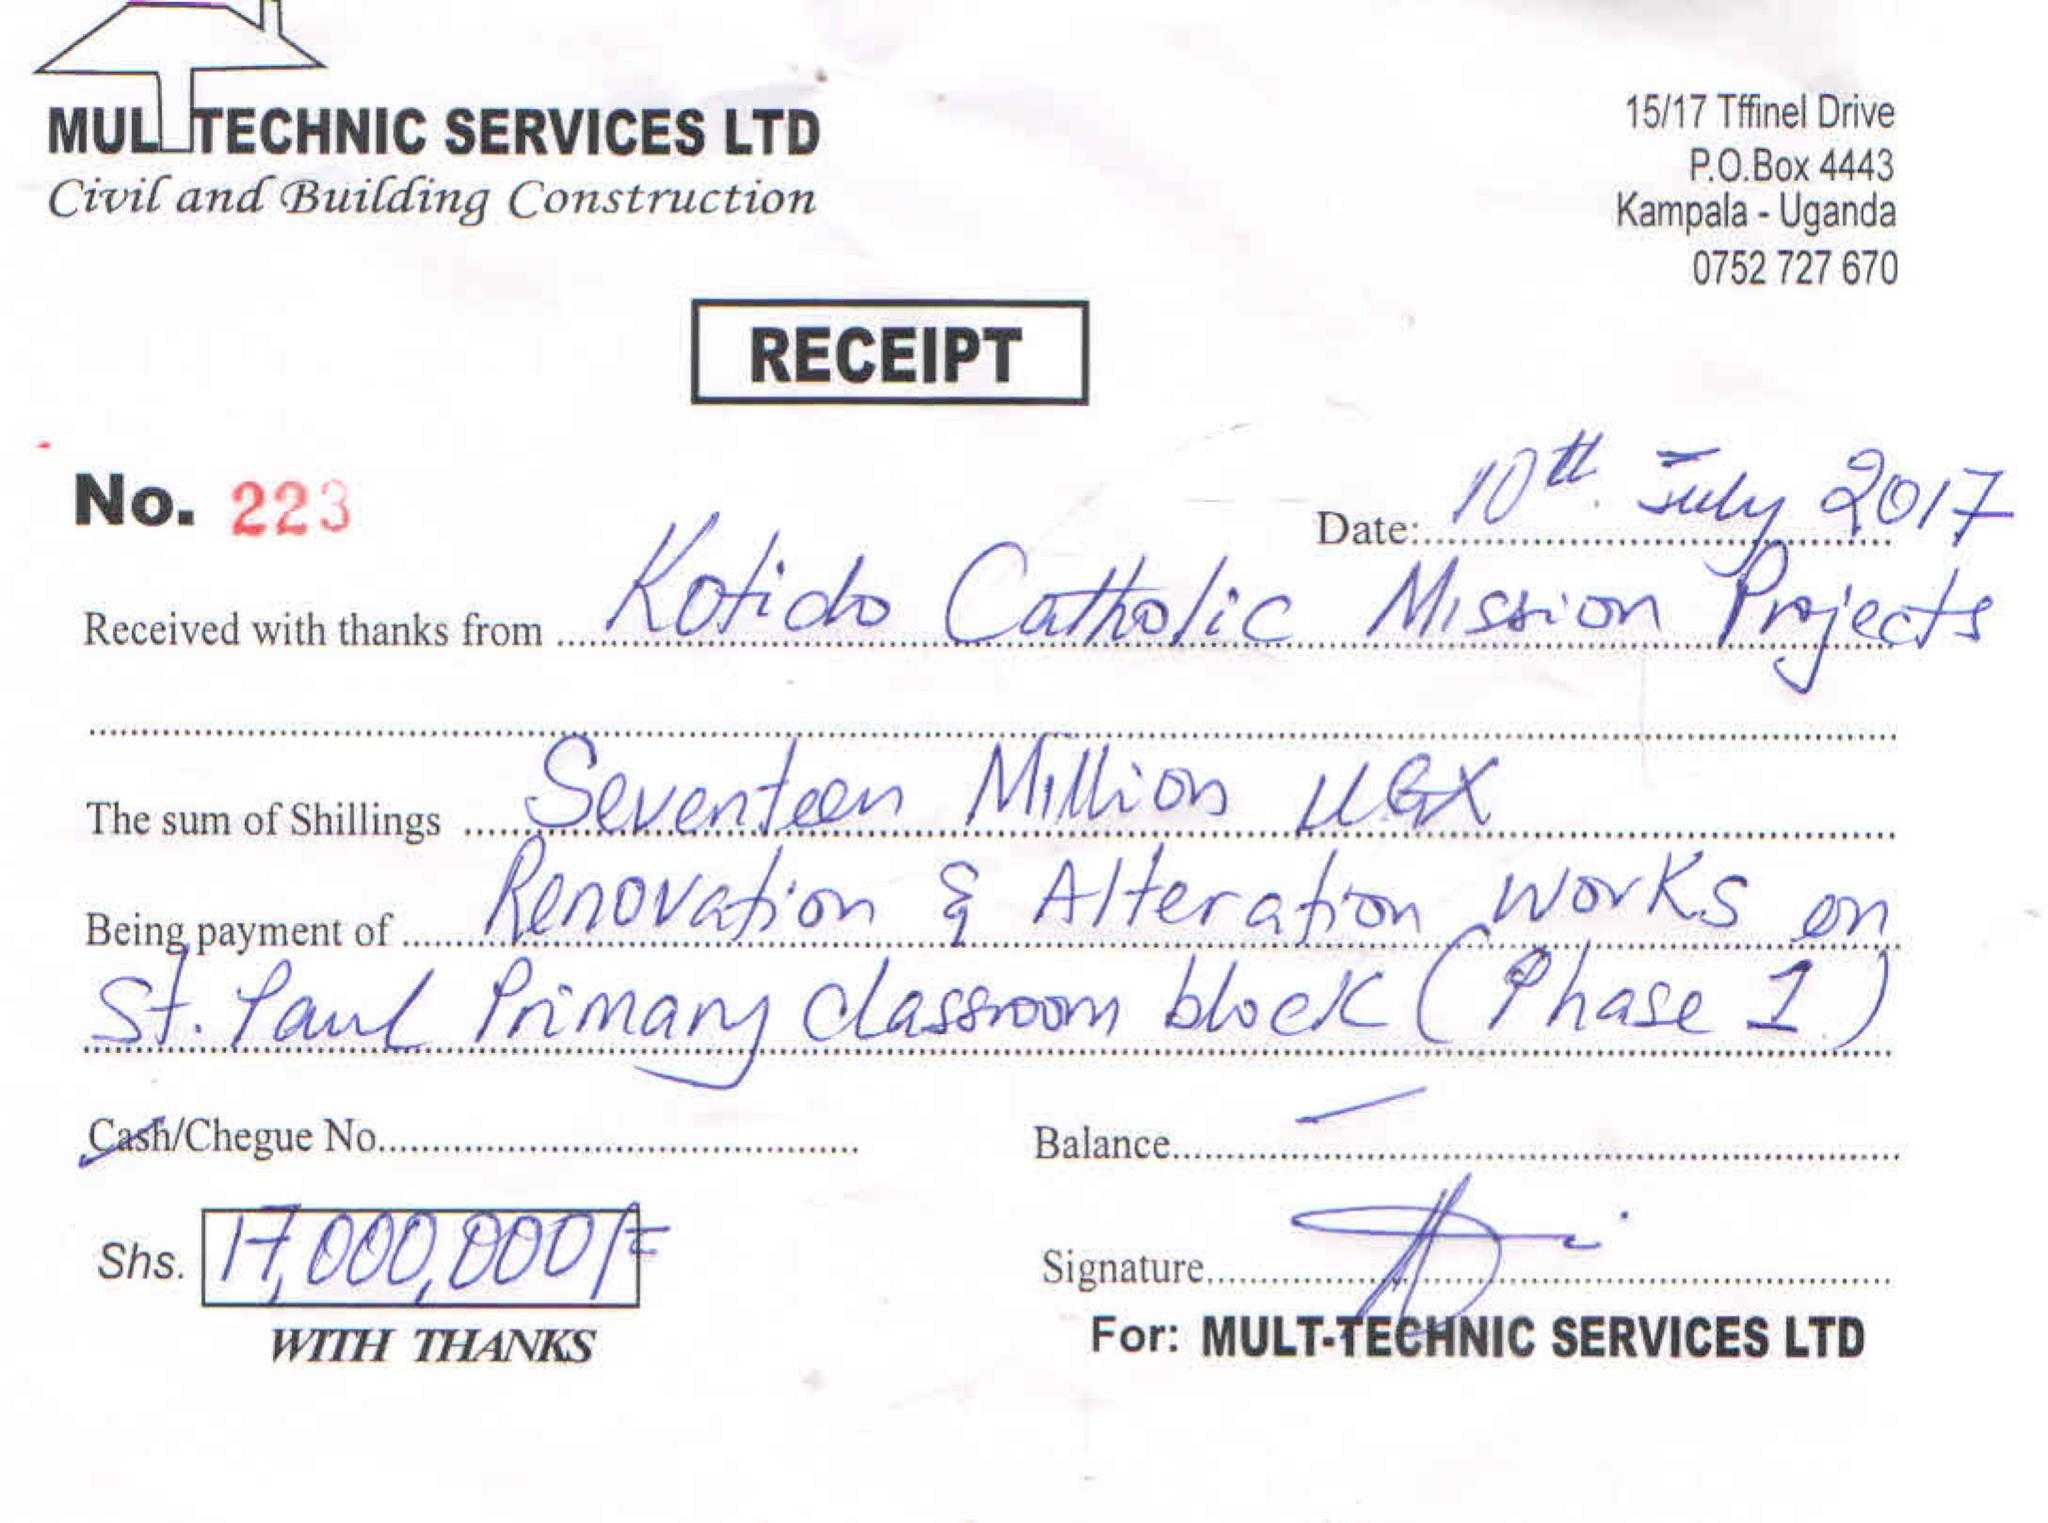 MULTTECHNIC SERVICES LTD
Civil and Building Construction
15/17 Tffinel Drive
P.O.Box 4443
Kampala - Uganda
0752 727 670
RECEIPT
No. 223
Date: 10th July 2017
Received with thanks from Kotido Catholic Mission Projects
The sum of Shillings Seventeen Million UGX
Being payment of Renovation & Alteration works on
St. Paul Primary classroom block (Phase 1)
Cash/Chegue No.
Balance —
Shs. 17,000,000/=
Signature
WITH THANKS
For: MULT-TECHNIC SERVICES LTD